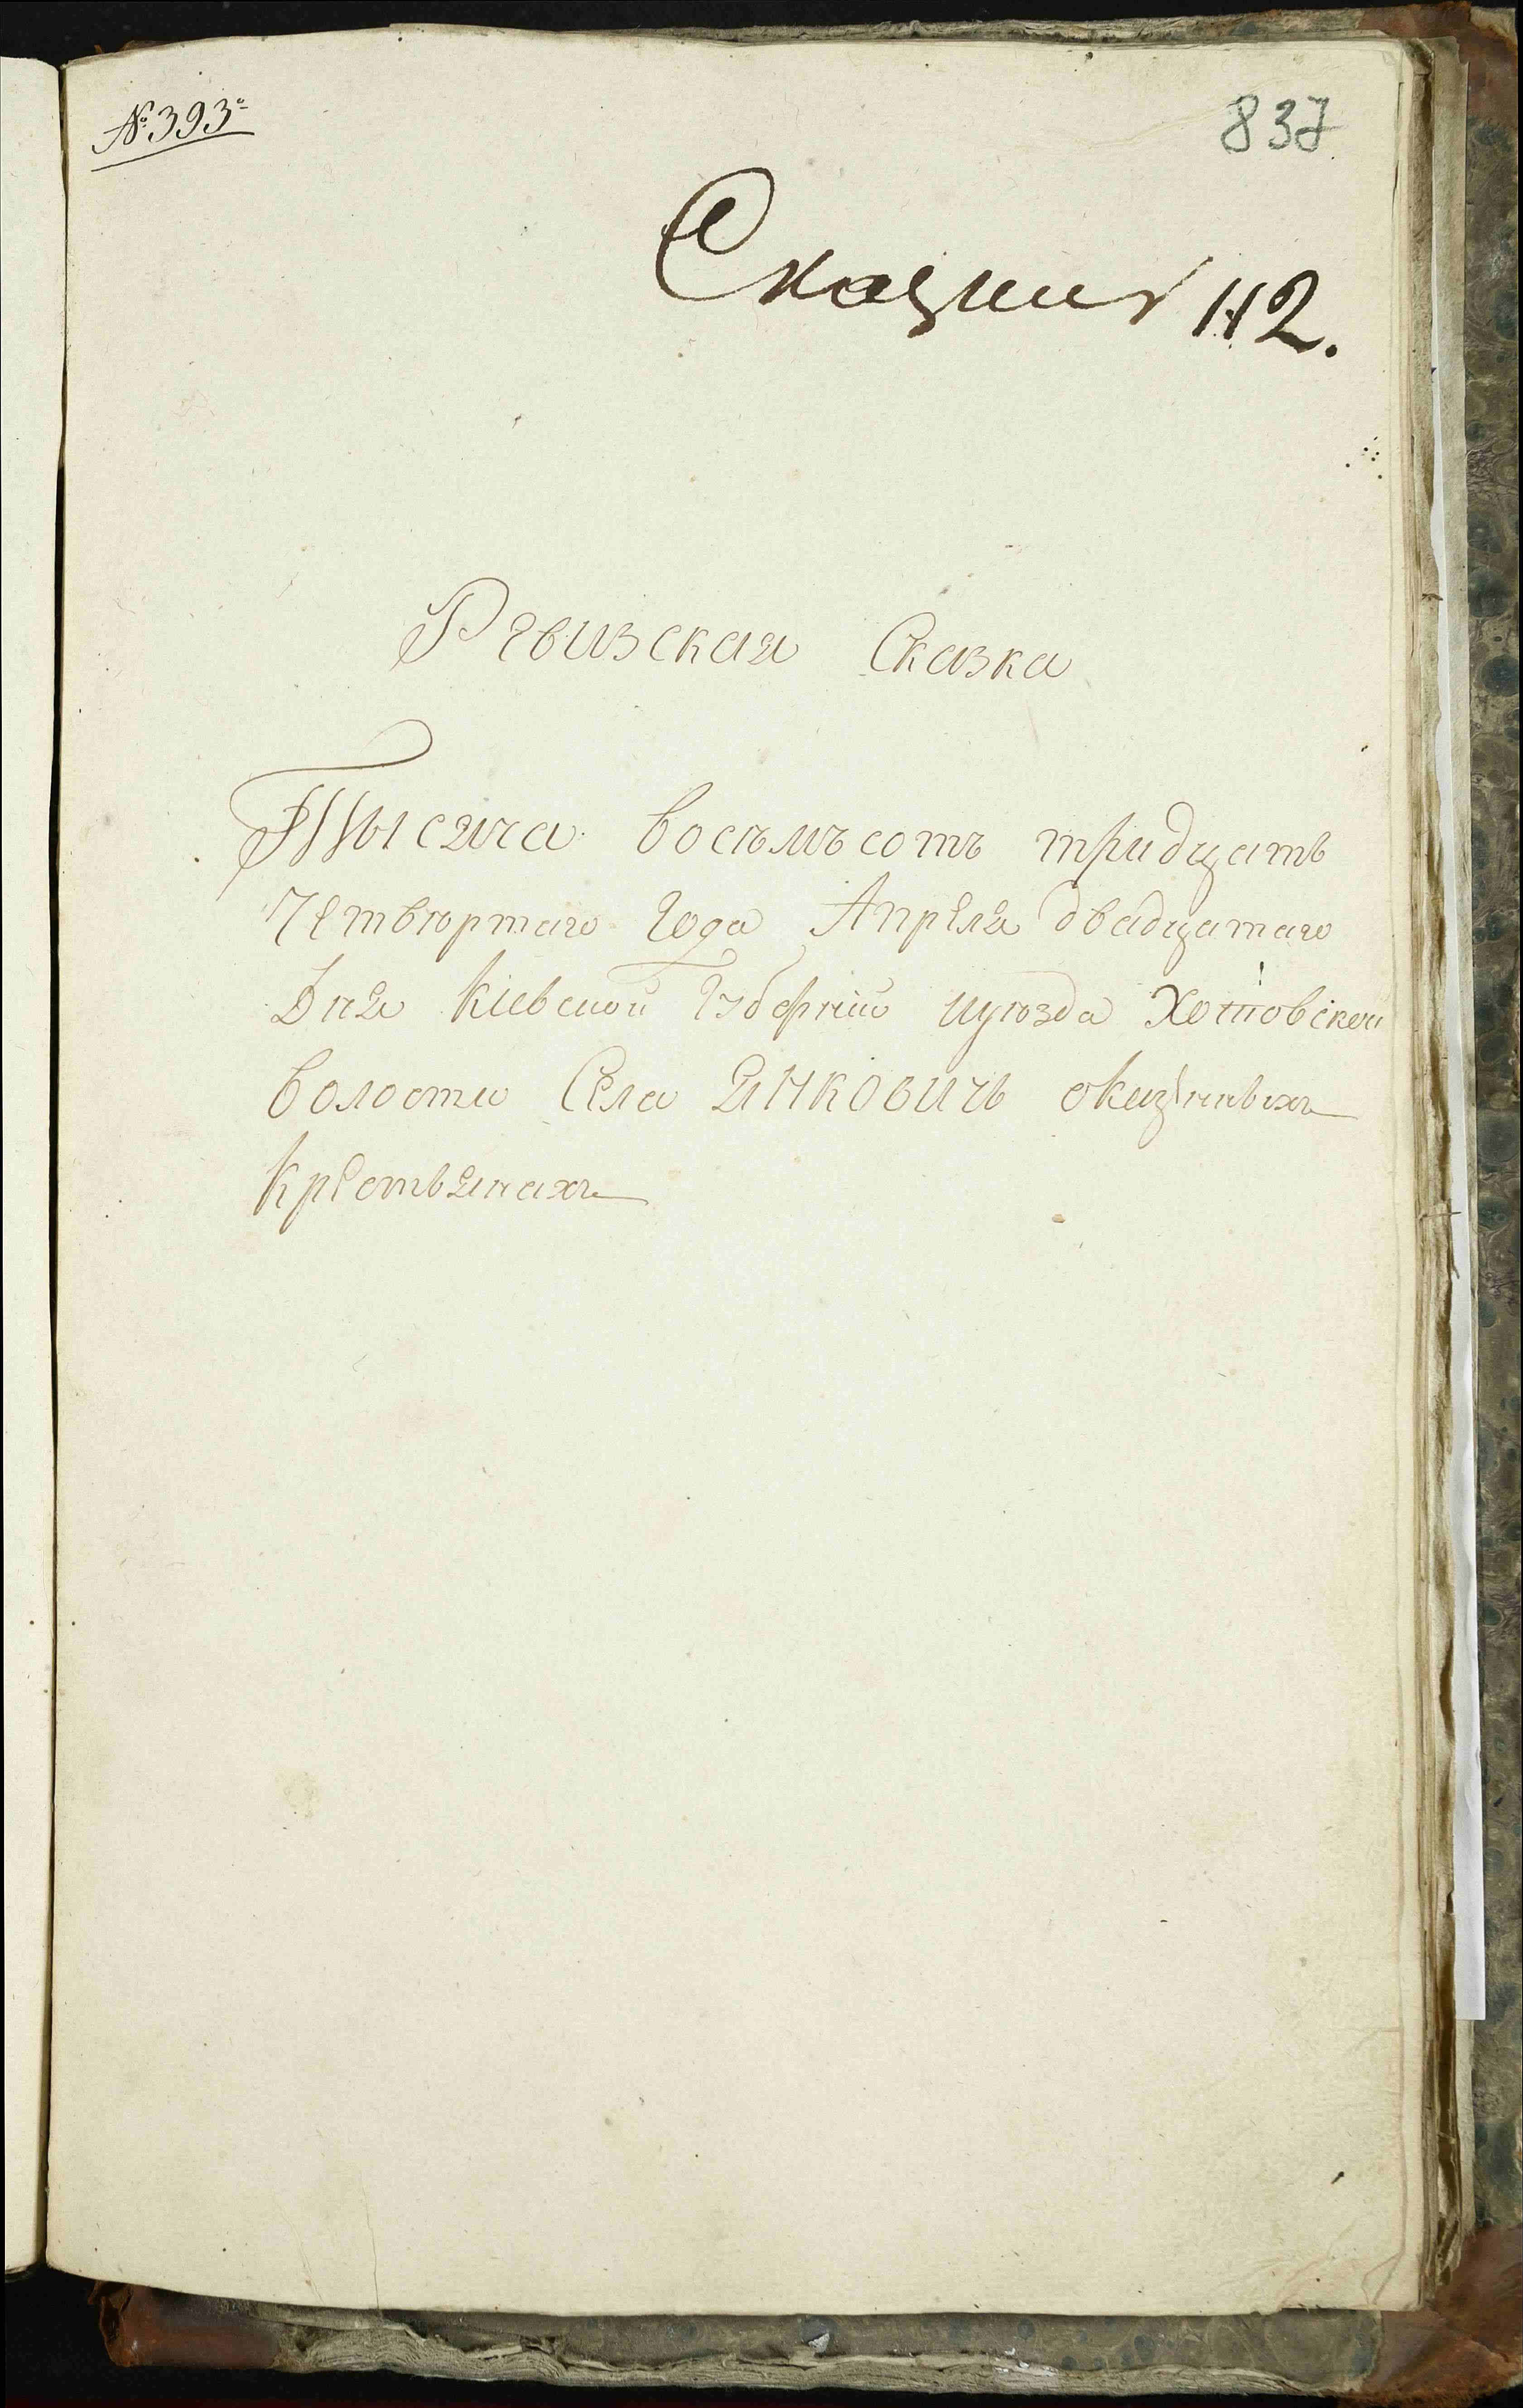 № 393.
837
112.
Ревизская Сказка
Тысяча восемьсотъ тридцать
Четвюртаго Года Апреля двадцатаго
Дня Кіевской Губерніи иуюзда Хотовской
волости Села Янковичь оказенныхъ
Крестьянахъ